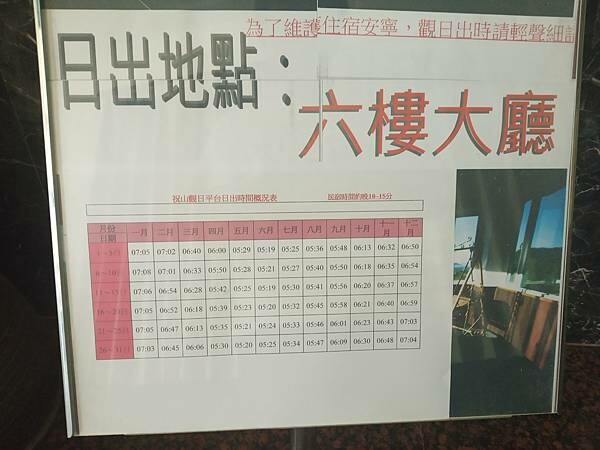 為了維護住宿安寧，觀日出時請輕聲細語
日出地點：
六樓大廳
祝山觀日平台日出時間概況表 民宿時間約晚10-15分
月份 日期 一月 二月 三月 四月 五月 六月 七月 八月 九月 十月 十一月 十二月
1～5日 07:05 07:02 06:40 06:00 05:29 05:19 05:25 05:36 05:48 06:13 06:32 06:50
6～10日 07:08 07:01 06:33 05:50 05:28 05:21 05:27 05:40 05:50 06:18 06:35 06:54
11～15日 07:06 06:54 06:28 05:42 05:25 05:19 05:30 05:41 05:56 06:20 06:37 06:57
16～20日 07:05 06:52 06:18 05:39 05:23 05:20 05:32 05:45 05:58 06:21 06:40 06:59
21～25日 07:05 06:47 06:13 05:35 05:21 05:24 05:33 05:46 06:01 06:23 06:43 07:03
26～31日 07:03 06:45 06:06 05:30 05:20 05:25 05:34 05:47 06:09 06:30 06:48 07:04